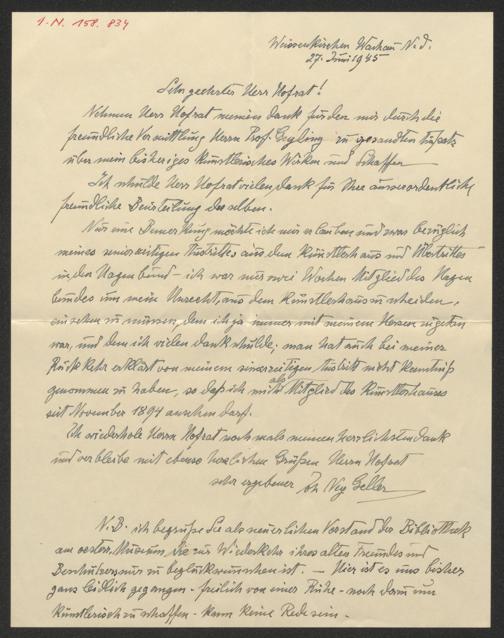 I.N. 158.834
Weissenkirchen Wachau N.D.
27. Juni 1945
Sehr geehrter Herr Hofrat!
Nehmen Herr Hofrat meinen Dank für den mir durch die
freundliche Vermittlung Herrn Prof. zu gesandten Aufsatz
über mein bisheriges künstlerisches Wirken und Schaffen
Ich schulde Herr Hofrat vielen Dank für Ihre ausserordentliche
freundliche Beurteilung desselben.
Nur eine Bemerkung möchte ich mir erlauben und zwar bezüglich
meines seinerzeitigen Austrittes aus dem Künstlerhaus und Übertrittes
in den Hagenbund – ich war nur zwei Wochen Mitglied des Hagen
bundes um mein Unrecht, aus dem Künstlerhaus zu scheiden,
einsehen zu müssen, dem ich ja immer mit meinem Herzen zugetan
war, und dem ich vielen Dank schulde; man hat auch bei meiner
Rückkehr erklärt von meinem seinerzeitigen Austritt nicht Kenntniß
genommen zu haben, so daß ich mich als Mitglied des Künstlerhauses
seit November 1894 ansehen darf.
Ich wiederhole Herrn Hofrat nochmals meinen herzlichsten Dank
und verbleibe mit ebenso herzlichen Grüßen Herrn Hofrat
sehr ergebener Joh Nep Geller
N.B. ich begrüße Sie als neuerlichen Vorstand der Bibliothek
am oesterr. Museum, die zur Wiederkehr ihres alten Freundes und
Beschützers nur zu beglückwünschen ist. – Hier ist es uns bisher
ganz leidlich gegangen – freilich von einer Ruhe – noch dazu um
künstlerisch zu schaffen – kann keine Rede sein.